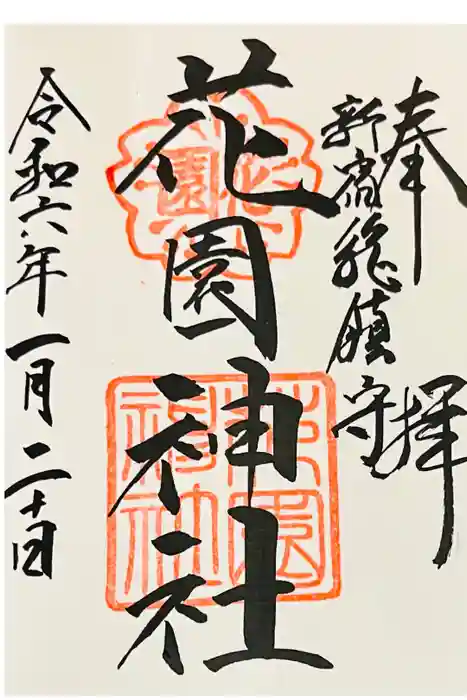 奉拝
新宿総鎮守
花園神社
令和六年一月二十日
花園
花園神社